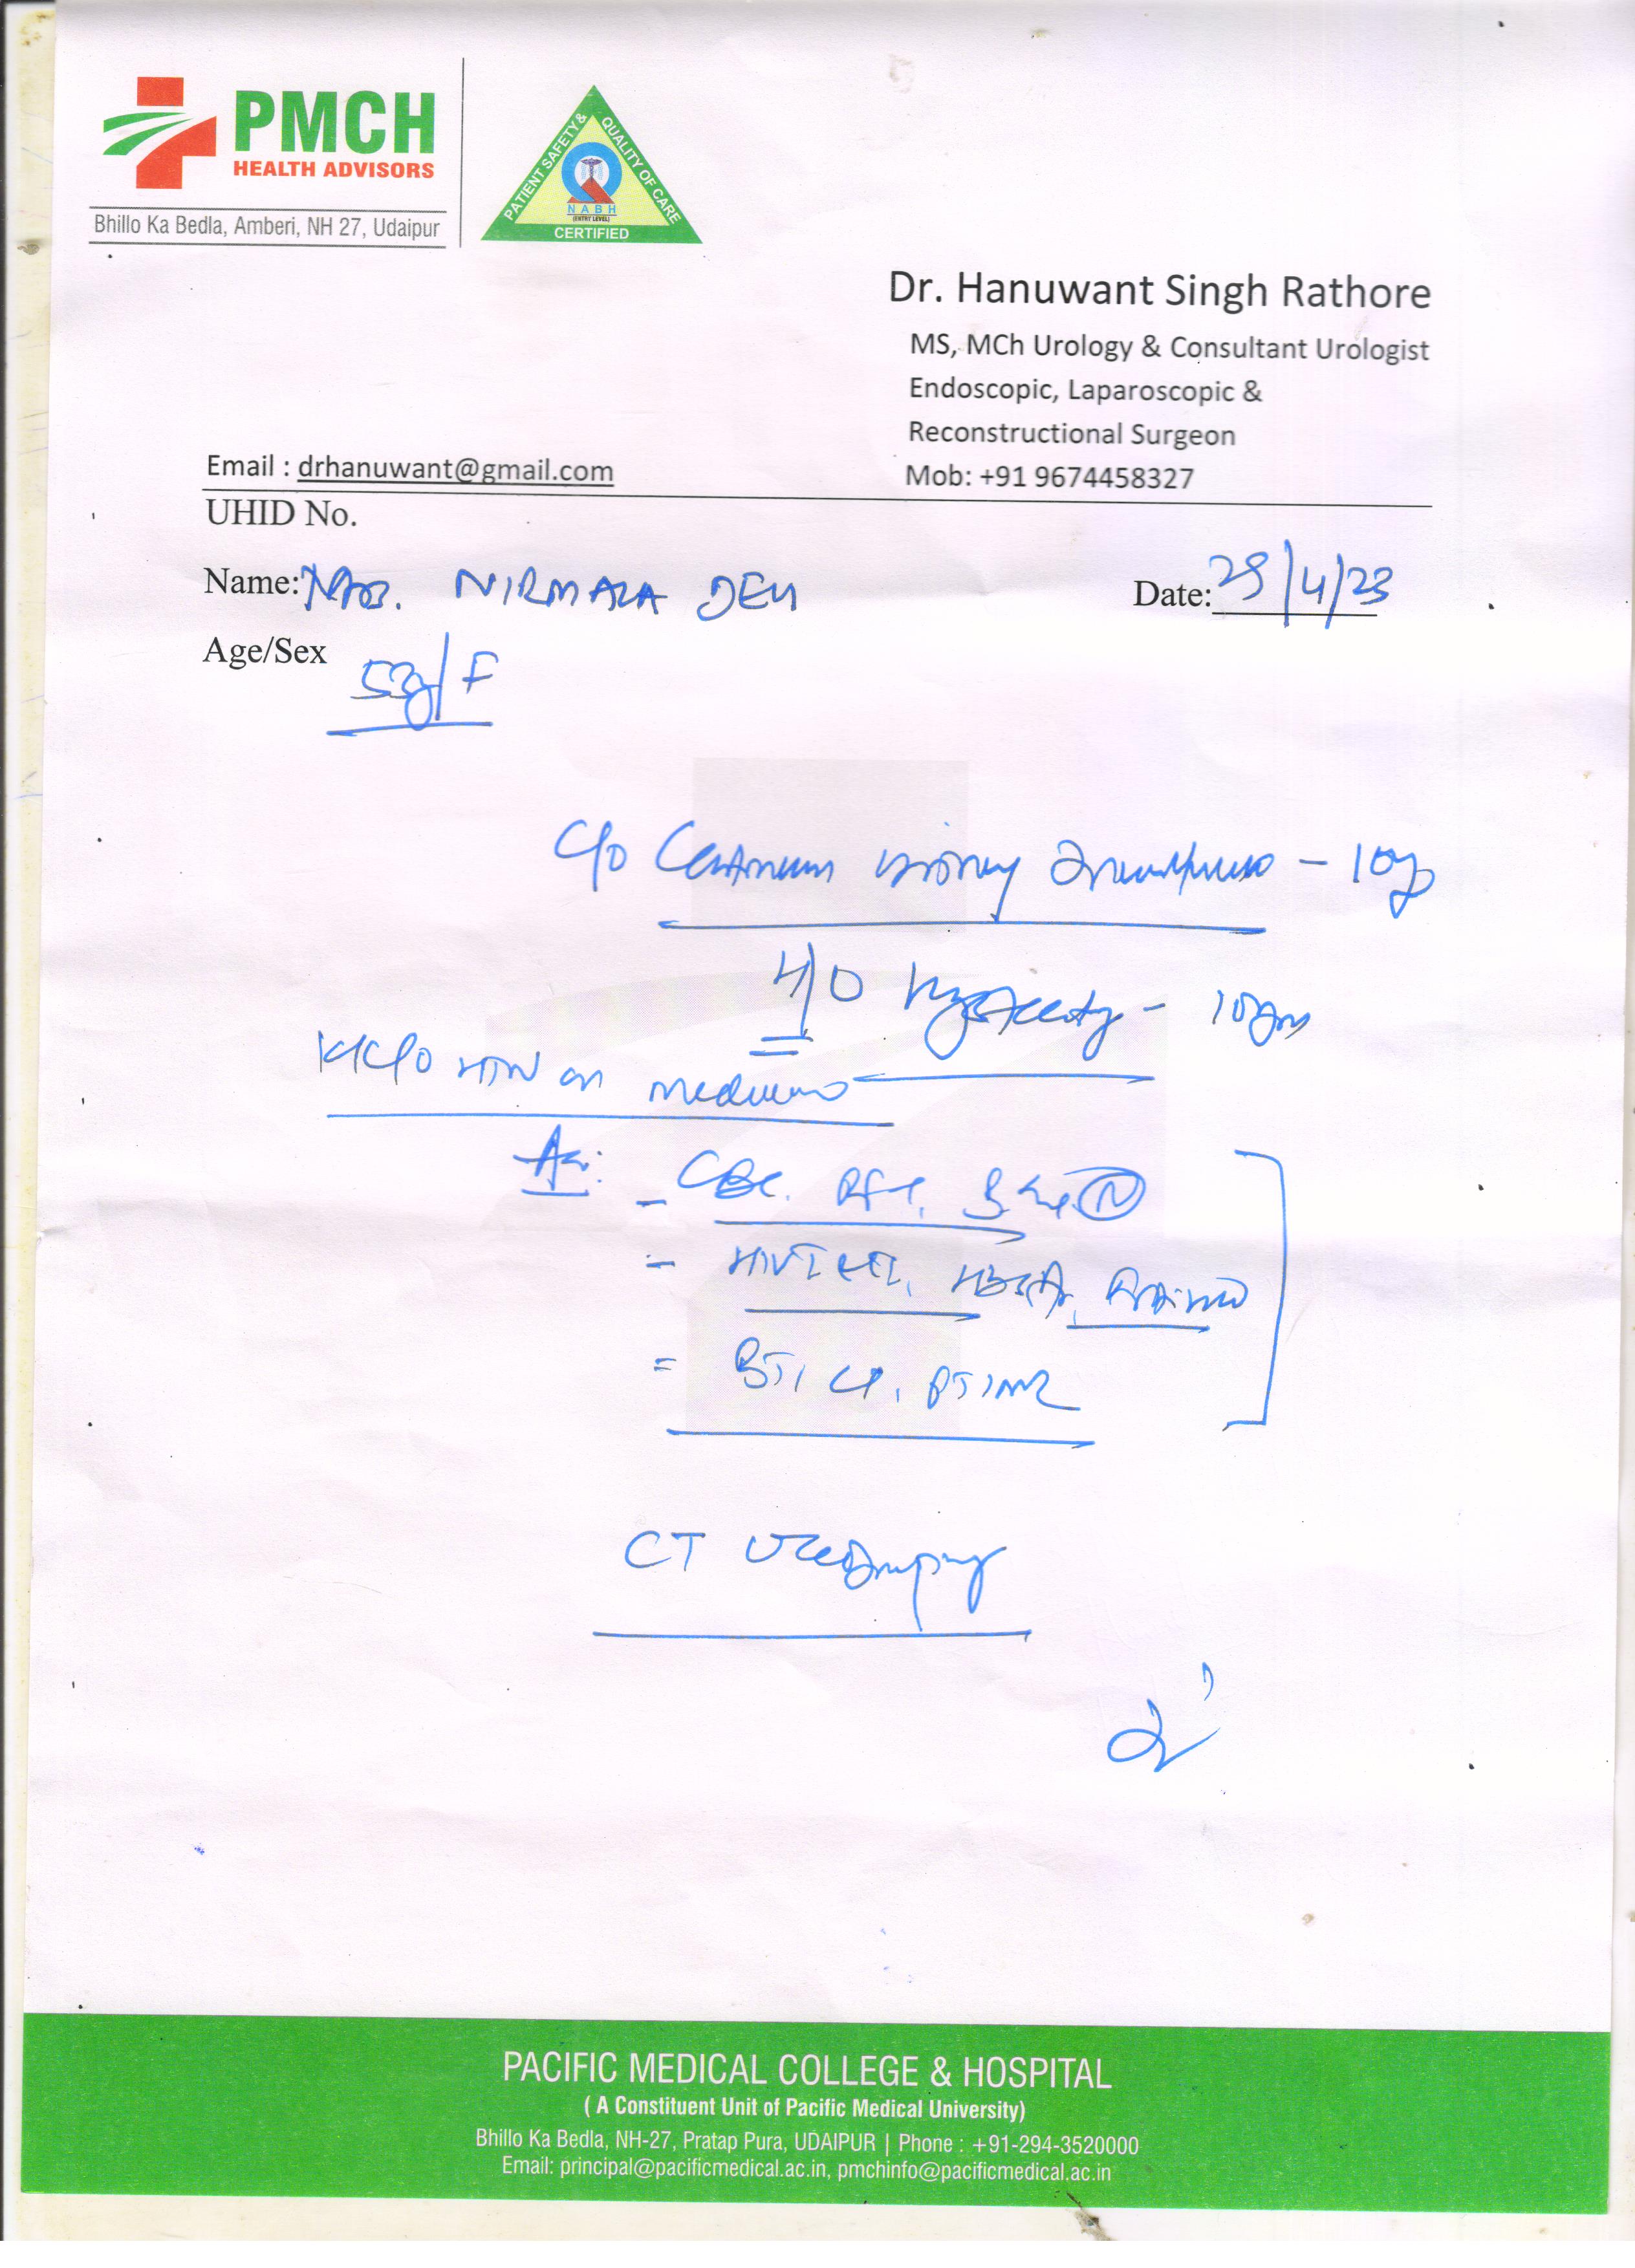 PMCH
HEALTH ADVISORS
Bhillo Ka Bedla, Amberi, NH 27, Udaipur
PATIENT SAFETY & QUALITY OF CARE
NABH
(ENTRY LEVEL)
CERTIFIED
Dr. Hanuwant Singh Rathore
MS, MCh Urology & Consultant Urologist
Endoscopic, Laparoscopic &
Reconstructional Surgeon
Email : drhanuwant@gmail.com
Mob: +91 9674458327
UHID No.
Name: Mrs. NIRMALA DEVI
Date: /4/23
Age/Sex F
C/o urinary - 10y
H/O - 10
K/C/O HTN on
Adv: - CBC. RFT,
- HIV I &II,
= BT, CT, PTINR
CT Urography
PACIFIC MEDICAL COLLEGE & HOSPITAL
( A Constituent Unit of Pacific Medical University)
Bhillo Ka Bedla, NH-27, Pratap Pura, UDAIPUR | Phone : +91-294-3520000
Email: principal@pacificmedical.ac.in, pmchinfo@pacificmedical.ac.in